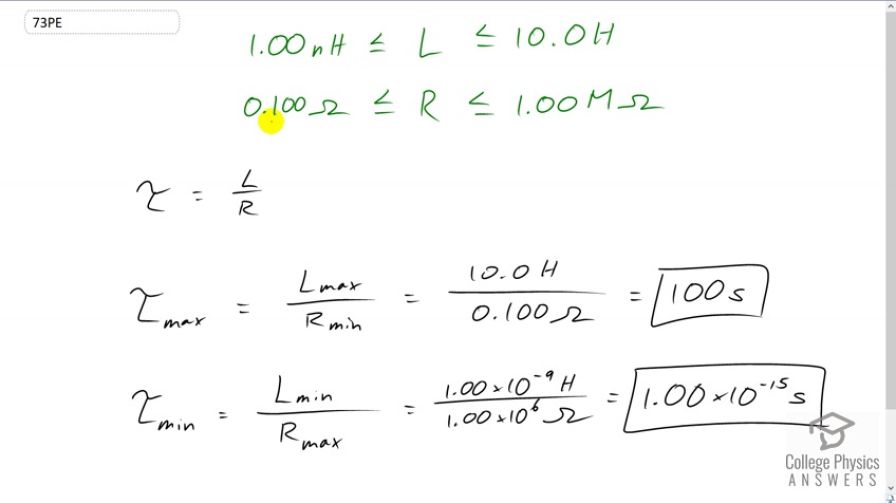 73PE
1.00nH ≤ L ≤ 10.0H
0.100Ω ≤ R ≤ 1.00MΩ
τ = L/R
τmax = Lmax/Rmin = 10.0H/0.100Ω = 100s
τmin = Lmin/Rmax = 1.00×10⁻⁹H/1.00×10⁶Ω = 1.00×10⁻¹⁵s
College Physics
ANSWERS